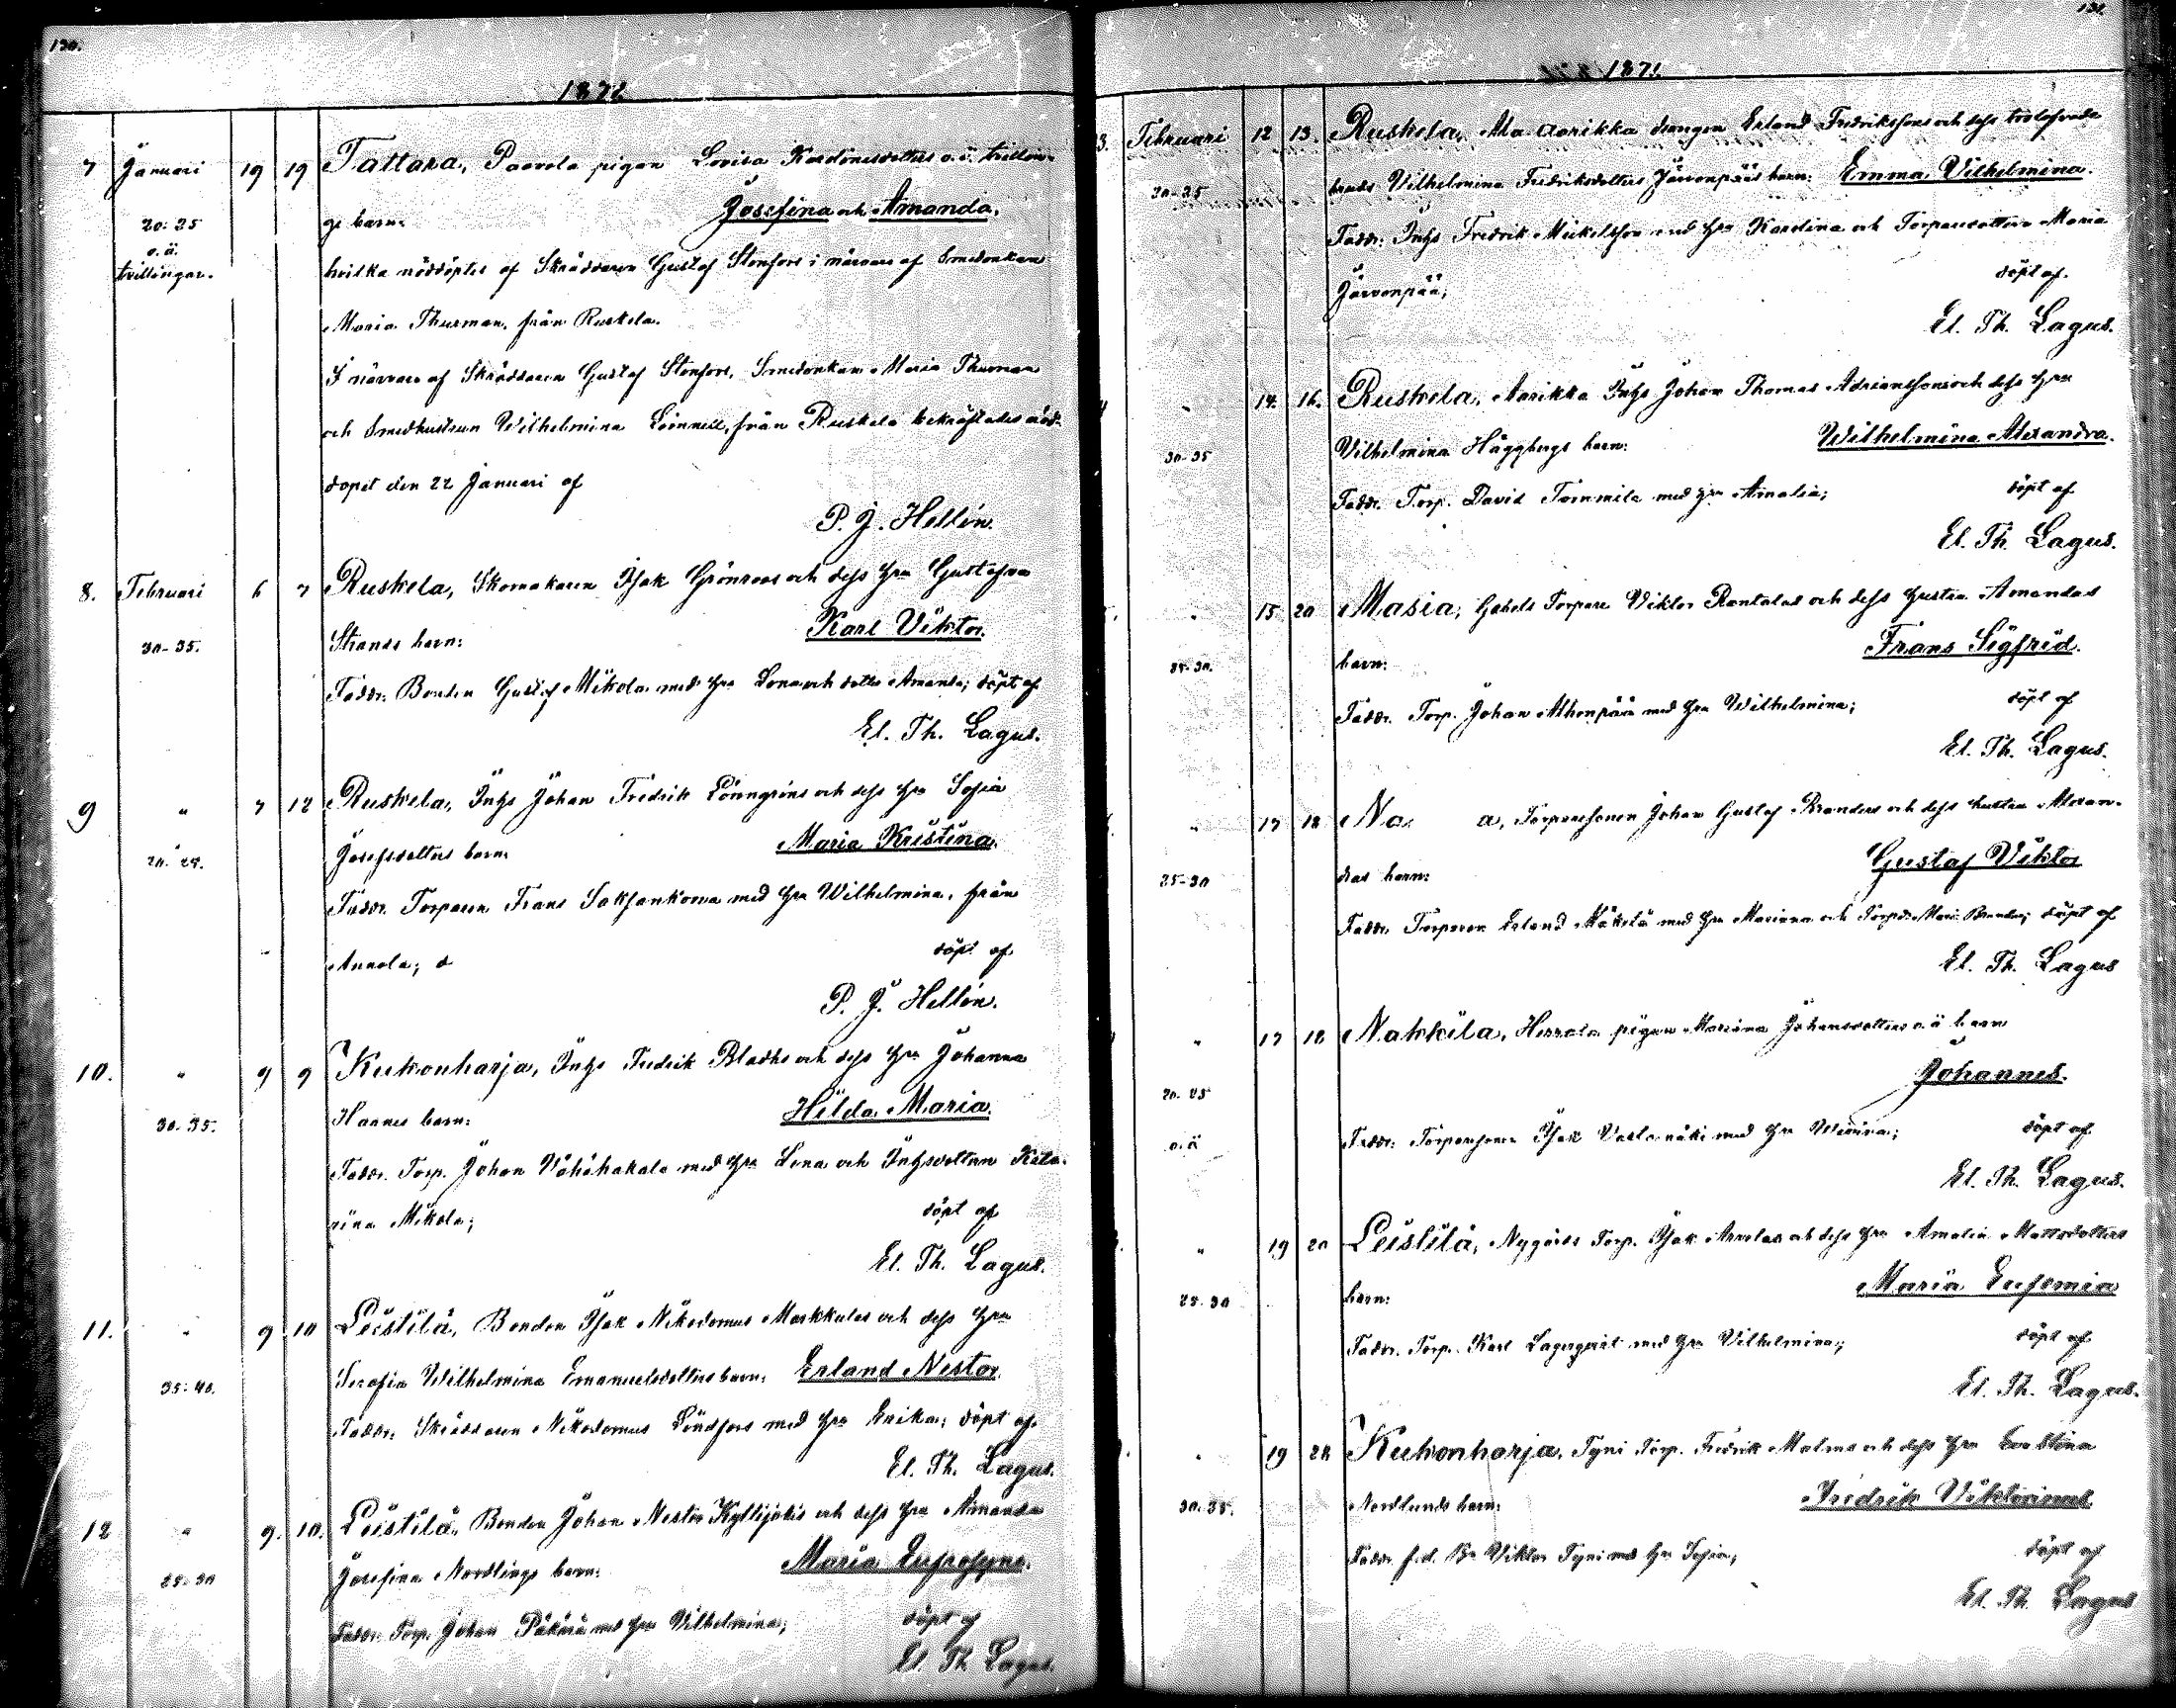 130.
1871
7 Januari 19 19 Tattara, Paavola pigan Lovisa Karolinasdotters o.ä. tvillin-
20-25 ge barn: Josefina och Amanda,
o.ä.
tvillingar. hvilka nöddöptes af Skräddaren Gustaf Stenfors i närvaro af Smedenkan
Maria Thurman, från Ruskela.
I närvaro af Skräddaren Gustaf Stenfors, Smedenkan Maria Thurman
och Smedhustrun Wilhelmina Lönnell, från Ruskela bekräftades nöd-
dopet den 22 Januari af
P. J. Hellén.
8. Februari 6 7 Ruskela, Skomakaren Isak Grönroos och dess hru Gustafva
30-35. Strands barn: Karl Viktor.
Faddr. Bonden Gustaf Mikola med hru Lena och dotter Amanda; döpt af
El. Th. Lagus.
9 " 7 12 Ruskela, Inhs Johan Fredrik Lönngréns och dess hru Sofia
20-25. Josefsdotters barn: Maria Kristina.
Faddr. Torparen Frans Saksankorva med hru Wilhelmina, från
Annola; d döpt af
P. J. Hellén.
10. " 9 9 Kukonharja, Inhs Fredrik Bladhs och dess hru Johanna
30-35. Hannes barn: Hilda Maria.
Faddr. Torp. Johan Vähähakala med hru Lena och Inhsdottern Kata-
rina Mikola; döpt af
El. Th. Lagus.
11. " 9 10 Leistilä, Bonden Isak Nikodemus Markkulas och dess hru
35-40. Serafia Wilhelmina Emanuelsdotters barn: Erland Nestor.
Faddr. Skräddaren Nikodemus Lindfors med hru Erika; döpt af
El. Th. Lagus.
12 " 9. 10. Leistilä, Bonden Johan Nestor Kyllijokis och dess hru Amanda
25-30 Josefina Nordlings barn: Maria Eufrosyne.
Faddr. Torp. Johan med hru Vilhelmina; döpt af
El. Th. Lagus.
131.
1871
3. Februari 12 13. Ruskela, Ala Aarikka drängen Erland Fredrikssons och dess trolofvade
20-25 bruds Vilhelmina Fredriksdotters Järvenpääs barn: Emma Vilhelmina.
Faddr. Inhs Fredrik Mickelsson med hru Karolina och Torparedottern Maria
Järvenpää; döpt af
El. Th. Lagus.
4 " 14. 16. Ruskela, Aarikka Inhs Johan Thomas Adrianssons och dess hru
30-35 Vilhelmina Häggbergs barn: Wilhelmina Alexandra.
Faddr. Torp. David Tommila med hru Amalia; döpt af
El. Th. Lagus.
" 15 20 Masia, Gabels Torpare Viktor Rantalas och dess hustru Amandas
25-30. barn: Frans Sigfrid.
Faddr. Torp. Johan Alhonpää med hru Wilhelmina; döpt af
El. Th. Lagus.
" 17 18 Na a, Torparesonen Johan Gustaf Branders och dess hustru Alexan-
25-30 dras barn: Gustaf Viktor
Faddr. Torparen Erland Mäkelä med hru Mariana och Torpd. Maria Brander; döpt af
El. Th. Lagus
" 17 18 Nakkila, Herrala pigan Mariana Johansdotters o.ä barn
20-25 Johannes.
o.ä Faddr. Torparesonen Isak med hru döpt af
El. Th. Lagus.
" 19 20 Leistilä, Nygårds Torp. Isak Arvelas och dess hru Amalia Mattsdotters
25-30 barn: Maria Eufemia
Faddr. Torp. Karl Lagerqvist med hru Vilhelmina; döpt af
El. Th. Lagus.
" 19 24 Kukonharja, Tyni Torp. Fredrik Malms och dess hru Eva Stina
30-35. Nordlunds barn: Fredrik Viktorinus
Faddr. f.d. Bn Viktor Tyni med hru Sofia; döpt af
El. Th. Lagus